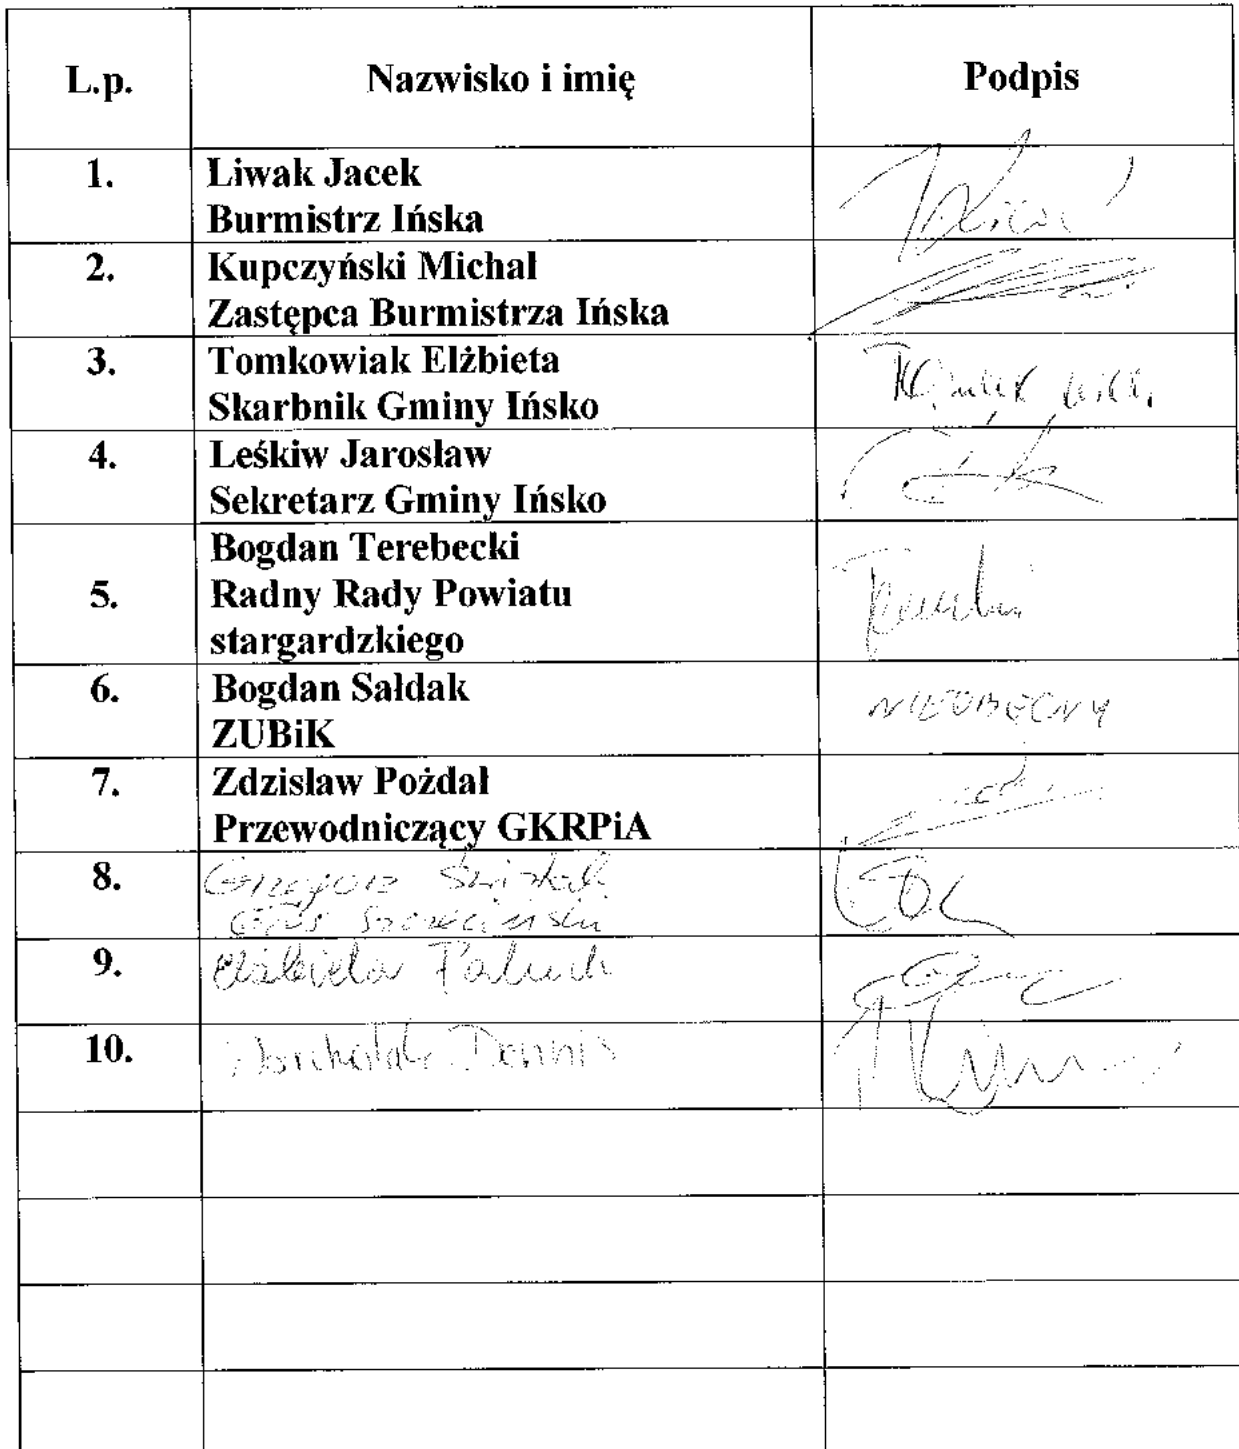 L.p. Nazwisko i imię Podpis
1. Liwak Jacek
Burmistrz Ińska
2. Kupczyński Michał
Zastępca Burmistrza Ińska
3. Tomkowiak Elżbieta
Skarbnik Gminy Ińsko
4. Leśkiw Jarosław
Sekretarz Gminy Ińsko
Bogdan Terebecki
5. Radny Rady Powiatu
stargardzkiego
6. Bogdan Sałdak NIEOBECNY
ZUBiK
7. Zdzisław Pożdał
Przewodniczący GKRPiA
8. Grzegorz
9. Elżbieta Paluch
10. Dennis